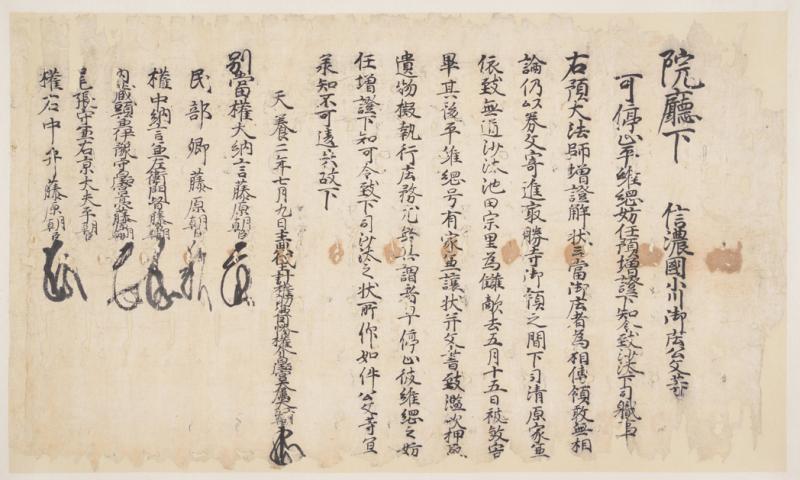 院廳下 信濃國小川御庄公文等
可停止平維綱妨任預増證下知令致沙汰下司職事
右預大法師増證解状云當御庄者為相傳領敢無相
論仍以券文寄進最勝寺御領之間下司清原家兼
依致無道沙汰池田宗里為讎敵去五月十五日被敓害
畢其後平維綱号有家兼讓状并文書致濫吹押取
遺物擬執行庄務尤終非謂者早停止彼維綱之妨
任増證下知可令致下司沙汰之状所仰如件公文等宜
承知不可違失故下
天養二年七月九日主典代
別當權大納言藤原朝臣
民部卿藤原朝臣
權中納言兼左衛門督藤原朝臣
内蔵頭兼伊豫守藤原朝臣
尾張守兼右京大夫平朝臣
權右中弁藤原朝臣